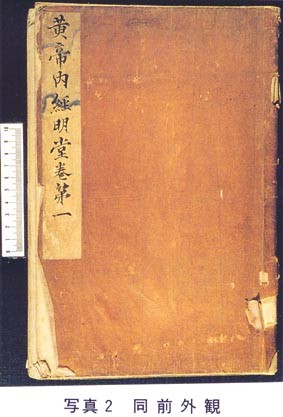 黄帝内經明堂卷第一
写真2 同前外観